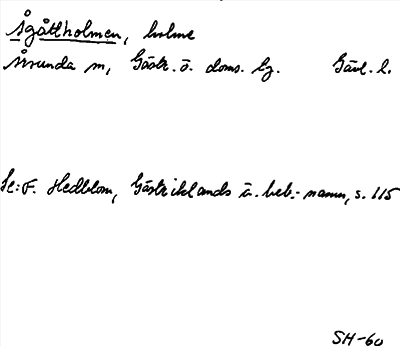 Ågåttholmen, holme
Årsunda sn, Gästr. ö. doms. lg. Gävl. l.
Se: F. Hedblom, Gästriklands ä. beb.-namn, s. 115
SH-60